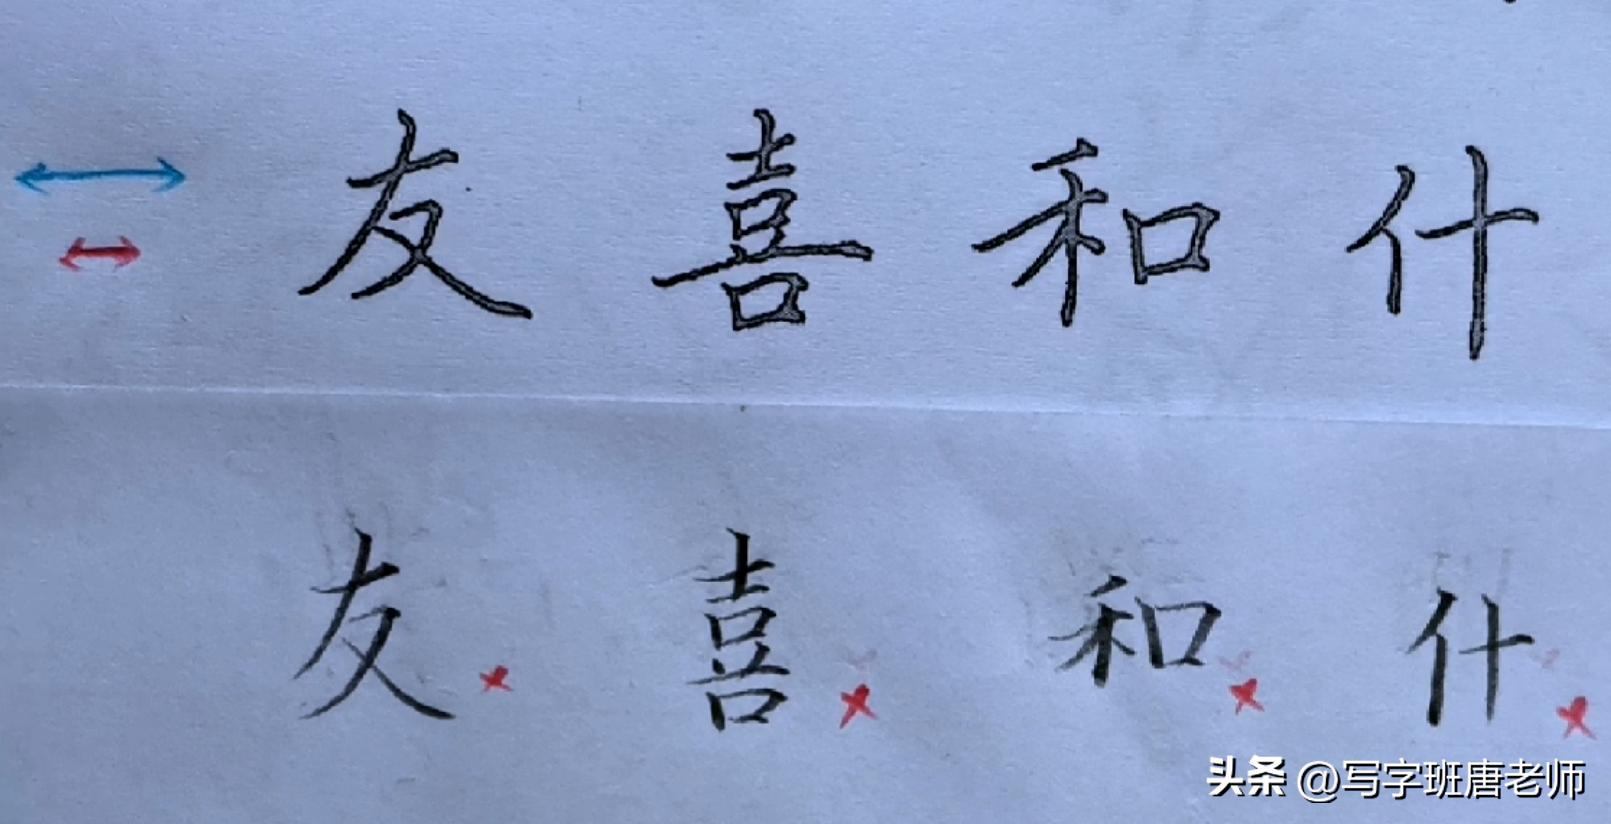 友喜和什
友喜和什
头条 @写字班唐老师